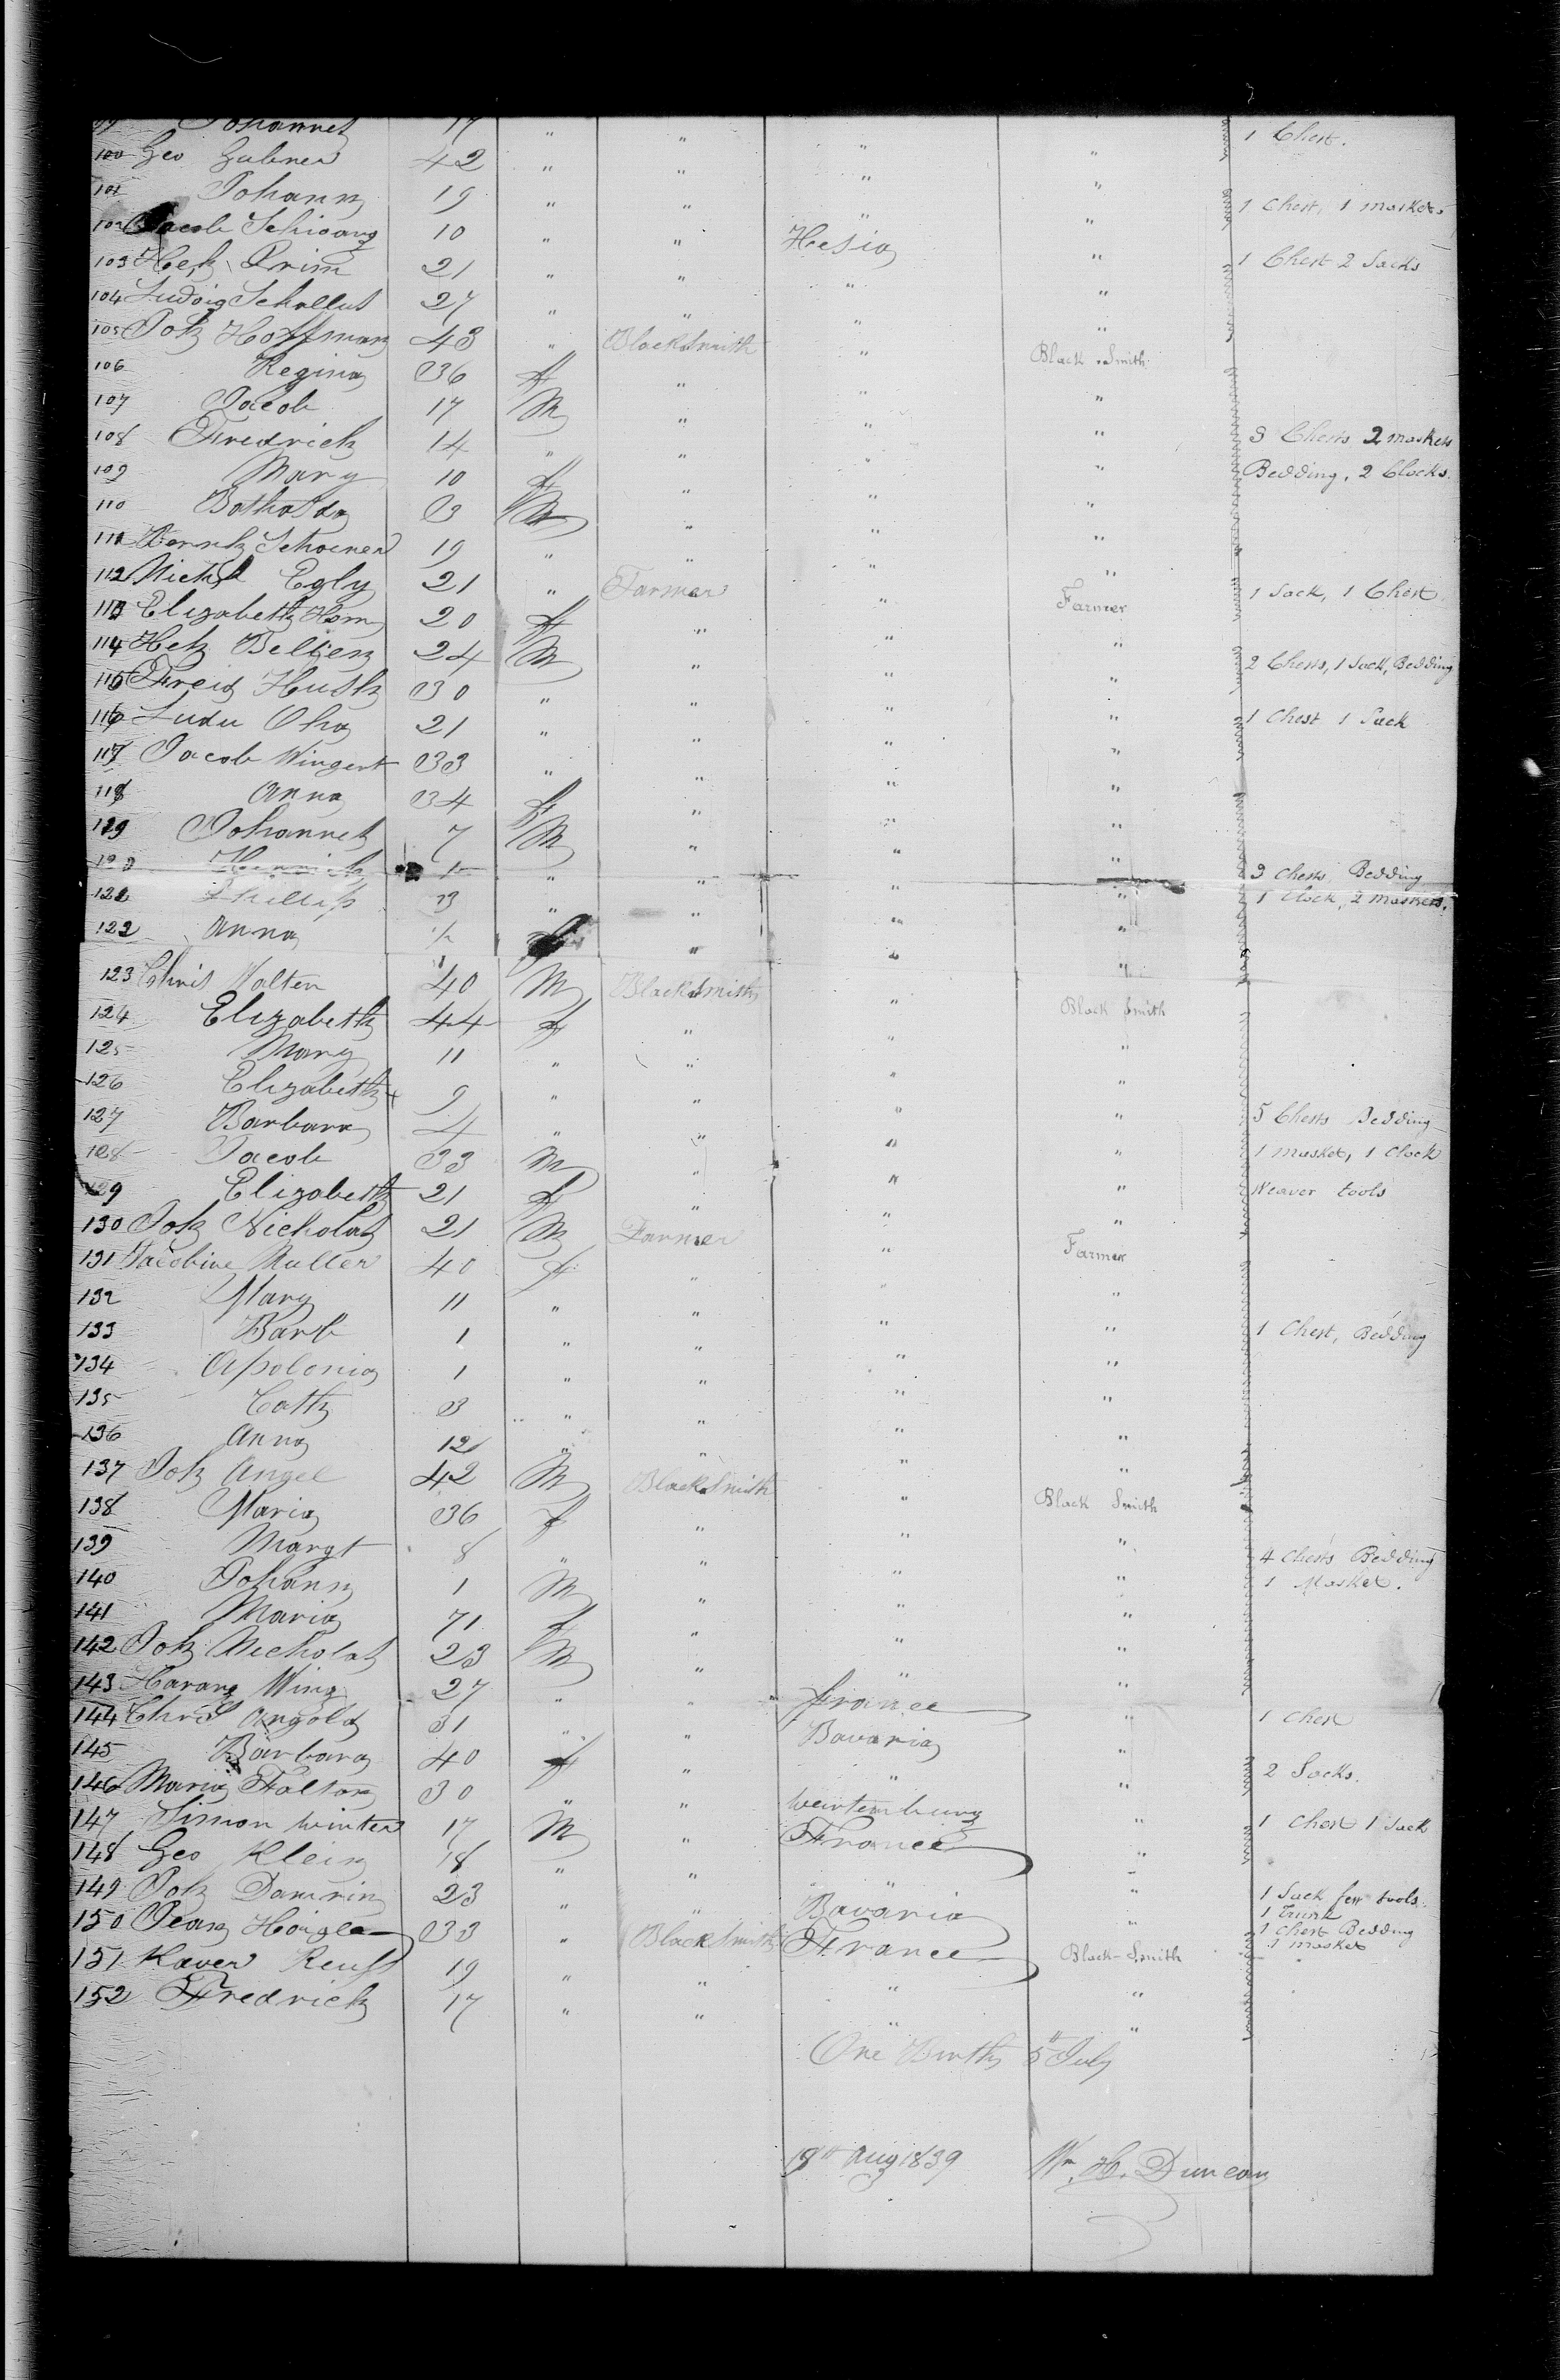 99 Johannes 17 " " " " 1 Chest.
100 Geo Gubner 42 " " " "
101 Johann 19 " " " " 1 Chest, 1 musket.
102 Jacob Schwang 10 " " Hesia "
103 Hek Prim 21 " " " " 1 Chest 2 Sacks
104 Ludwig Schallus 27 " " " "
105 Joh Hoffman 43 " Blacksmith " Black Smith
106 Regina 36 f " " "
107 Jacob 17 M " " "
108 Fredrick 14 " " " " 3 Chests 2 muskets
109 Mary 10 f " " " Bedding, 2 Clocks.
110 Bothalda 3 M " " "
111 Schoener 19 " " " "
112 Michl Egly 21 " Farmer " Farmer 1 Sack, 1 Chest
113 Elizabeth Hom 20 f " " "
114 Hek Bellien 24 M " " " 2 Chests, 1 Sack, Bedding
115 Freid Hush 30 " " " "
116 Ludu Oha 21 " " " " 1 Chest 1 Sack
117 Jacob Wingert 33 " " " "
118 Anna 34 f " " "
119 Johannes 7 M " " "
120 " " " " 3 Chests, Bedding
121 Phillip 3 " " " " 1 Clock, 2 muskets.
122 Anna 1/2 f " " "
123 Chris Walter 40 M Blacksmith " Black Smith
124 Elizabeth 44 f " " "
125 Mary 11 " " " "
126 Elizabeth 9 " " " "
127 Barbara 4 " " " " 5 Chests Bedding
128 Jacob 33 M " " " 1 musket, 1 Clock
129 Elizabeth 21 f " " " Weaver tools
130 Joh Nicholas 21 M Farmer " Farmer
131 Jacobine Muller 40 f " " "
132 Mary 11 " " " "
133 Barb 1 " " " " 1 Chest, Bedding
134 Apolonia 1 " " " "
135 Cath 3 " " " "
136 Anna 12 " " " "
137 Joh Angel 42 M Blacksmith " Black Smith
138 Maria 36 f " " "
139 Margt 8 " " " " 4 Chests Bedding
140 Johann 1 M " " " 1 Musket.
141 Maria 71 f " " "
142 Joh Nicholas 23 M " " "
143 Wing 27 " " france "
144 Chris Angold 31 " " Bavaria " 1 Chest
145 Barbara 40 f " " "
146 Maria Foltan 30 " " Weirtemburg " 2 Sacks.
147 Simon Winter 17 M " France " 1 Chest 1 Sack
148 Geo Klein 18 " " " "
149 Joh Damrin 23 " " Bavaria " 1 Sack few tools.
1 Trunk
150 Jean 33 " Blacksmith France Black-Smith 1 Chest Bedding
1 musket
151 Xaver Reuss 19 " " " "
152 Fredrick 17 " " " "
One Birth 5th July
19th Aug 1839 Wm. H. Duncan